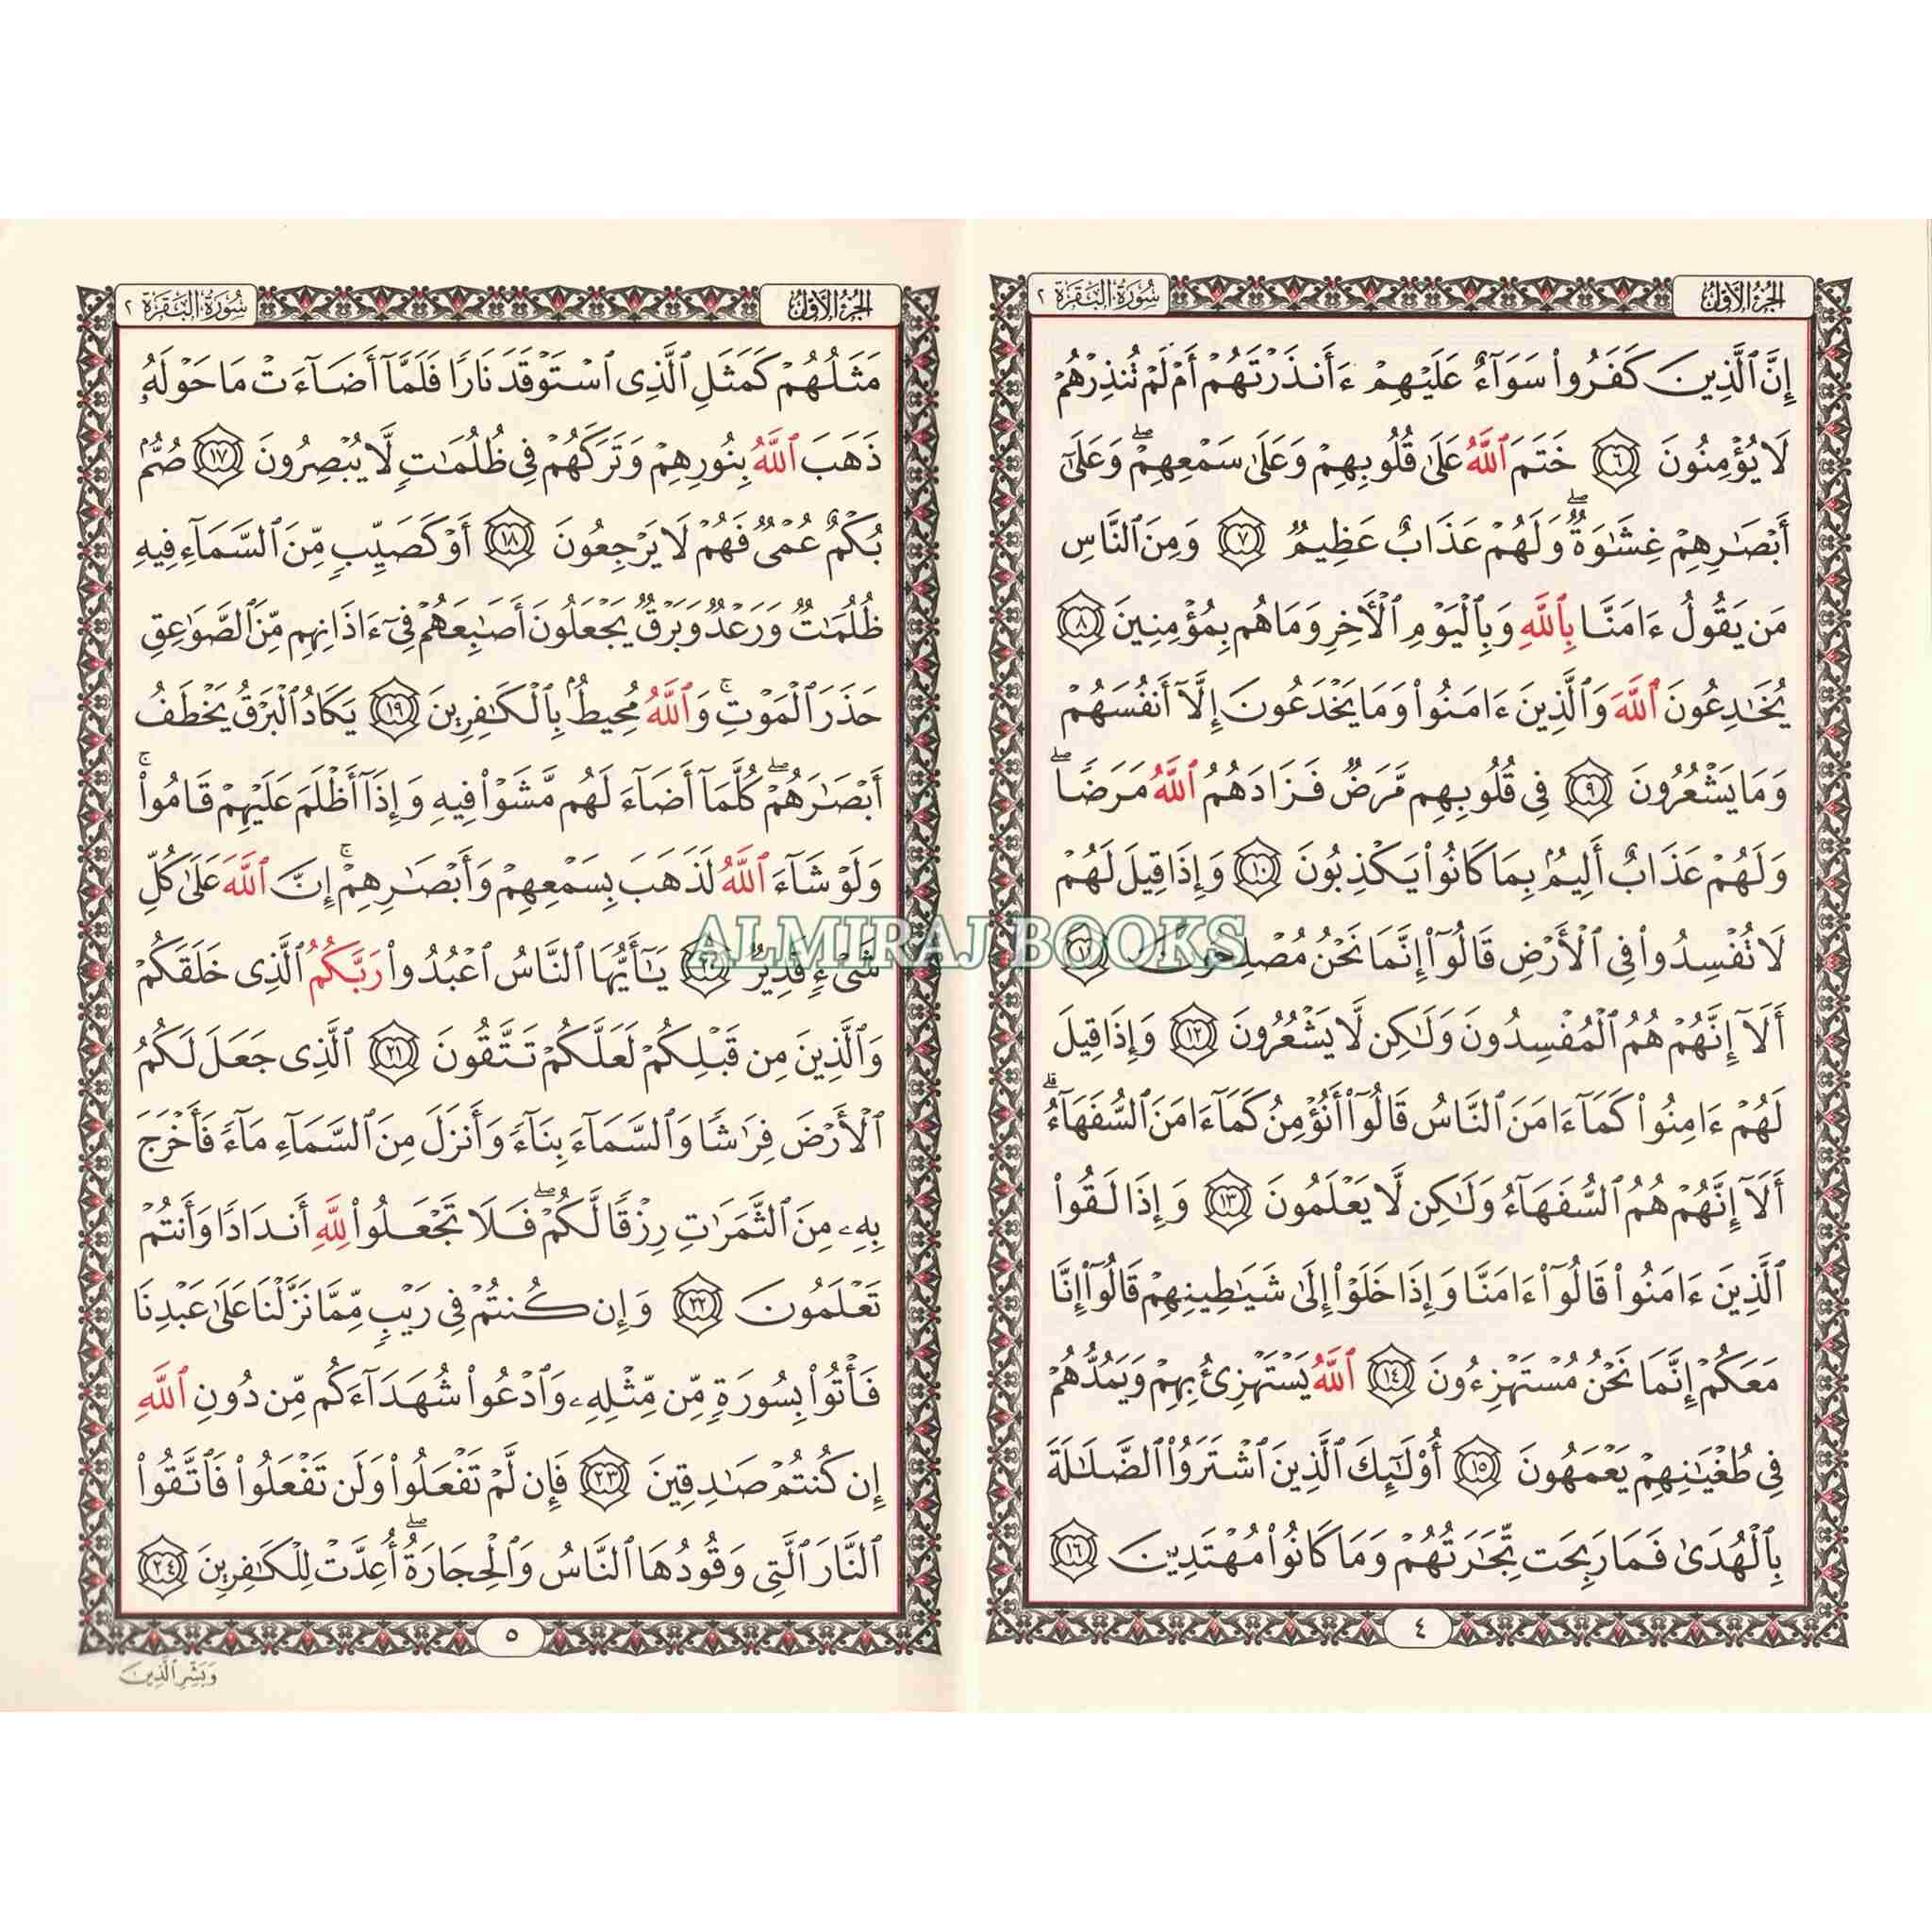 الجزء الأول
سورة البقرة ٢
إِنَّ ٱلَّذِينَ كَفَرُوا۟ سَوَآءٌ عَلَيْهِمْ ءَأَنذَرْتَهُمْ أَمْ لَمْ تُنذِرْهُمْ
لَا يُؤْمِنُونَ ٦ خَتَمَ ٱللَّهُ عَلَىٰ قُلُوبِهِمْ وَعَلَىٰ سَمْعِهِمْ ۖ وَعَلَىٰٓ
أَبْصَٰرِهِمْ غِشَٰوَةٌ ۖ وَلَهُمْ عَذَابٌ عَظِيمٌ ٧ وَمِنَ ٱلنَّاسِ
مَن يَقُولُ ءَامَنَّا بِٱللَّهِ وَبِٱلْيَوْمِ ٱلْءَاخِرِ وَمَا هُم بِمُؤْمِنِينَ ٨
يُخَٰدِعُونَ ٱللَّهَ وَٱلَّذِينَ ءَامَنُوا۟ وَمَا يَخْدَعُونَ إِلَّآ أَنفُسَهُمْ
وَمَا يَشْعُرُونَ ٩ فِى قُلُوبِهِم مَّرَضٌ فَزَادَهُمُ ٱللَّهُ مَرَضًا ۖ
وَلَهُمْ عَذَابٌ أَلِيمٌۢ بِمَا كَانُوا۟ يَكْذِبُونَ ١٠ وَإِذَا قِيلَ لَهُمْ
لَا تُفْسِدُوا۟ فِى ٱلْأَرْضِ قَالُوٓا۟ إِنَّمَا نَحْنُ مُصْلِحُونَ ١١
أَلَآ إِنَّهُمْ هُمُ ٱلْمُفْسِدُونَ وَلَٰكِن لَّا يَشْعُرُونَ ١٢ وَإِذَا قِيلَ
لَهُمْ ءَامِنُوا۟ كَمَآ ءَامَنَ ٱلنَّاسُ قَالُوٓا۟ أَنُؤْمِنُ كَمَآ ءَامَنَ ٱلسُّفَهَآءُ ۗ
أَلَآ إِنَّهُمْ هُمُ ٱلسُّفَهَآءُ وَلَٰكِن لَّا يَعْلَمُونَ ١٣ وَإِذَا لَقُوا۟
ٱلَّذِينَ ءَامَنُوا۟ قَالُوٓا۟ ءَامَنَّا وَإِذَا خَلَوْا۟ إِلَىٰ شَيَٰطِينِهِمْ قَالُوٓا۟ إِنَّا
مَعَكُمْ إِنَّمَا نَحْنُ مُسْتَهْزِءُونَ ١٤ ٱللَّهُ يَسْتَهْزِئُ بِهِمْ وَيَمُدُّهُمْ
فِى طُغْيَٰنِهِمْ يَعْمَهُونَ ١٥ أُو۟لَٰٓئِكَ ٱلَّذِينَ ٱشْتَرَوُا۟ ٱلضَّلَٰلَةَ
بِٱلْهُدَىٰ فَمَا رَبِحَت تِّجَٰرَتُهُمْ وَمَا كَانُوا۟ مُهْتَدِينَ ١٦
٤
الجزء الأول
سورة البقرة ٢
مَثَلُهُمْ كَمَثَلِ ٱلَّذِى ٱسْتَوْقَدَ نَارًا فَلَمَّآ أَضَآءَتْ مَا حَوْلَهُۥ
ذَهَبَ ٱللَّهُ بِنُورِهِمْ وَتَرَكَهُمْ فِى ظُلُمَٰتٍ لَّا يُبْصِرُونَ ١٧ صُمٌّۢ
بُكْمٌ عُمْىٌ فَهُمْ لَا يَرْجِعُونَ ١٨ أَوْ كَصَيِّبٍ مِّنَ ٱلسَّمَآءِ فِيهِ
ظُلُمَٰتٌ وَرَعْدٌ وَبَرْقٌ يَجْعَلُونَ أَصَٰبِعَهُمْ فِىٓ ءَاذَانِهِم مِّنَ ٱلصَّوَٰعِقِ
حَذَرَ ٱلْمَوْتِ ۚ وَٱللَّهُ مُحِيطٌۢ بِٱلْكَٰفِرِينَ ١٩ يَكَادُ ٱلْبَرْقُ يَخْطَفُ
أَبْصَٰرَهُمْ ۖ كُلَّمَآ أَضَآءَ لَهُم مَّشَوْا۟ فِيهِ وَإِذَآ أَظْلَمَ عَلَيْهِمْ قَامُوا۟ ۚ
وَلَوْ شَآءَ ٱللَّهُ لَذَهَبَ بِسَمْعِهِمْ وَأَبْصَٰرِهِمْ ۚ إِنَّ ٱللَّهَ عَلَىٰ كُلِّ
شَىْءٍ قَدِيرٌ ٢٠ يَٰٓأَيُّهَا ٱلنَّاسُ ٱعْبُدُوا۟ رَبَّكُمُ ٱلَّذِى خَلَقَكُمْ
وَٱلَّذِينَ مِن قَبْلِكُمْ لَعَلَّكُمْ تَتَّقُونَ ٢١ ٱلَّذِى جَعَلَ لَكُمُ
ٱلْأَرْضَ فِرَٰشًا وَٱلسَّمَآءَ بِنَآءً وَأَنزَلَ مِنَ ٱلسَّمَآءِ مَآءً فَأَخْرَجَ
بِهِۦ مِنَ ٱلثَّمَرَٰتِ رِزْقًا لَّكُمْ ۖ فَلَا تَجْعَلُوا۟ لِلَّهِ أَندَادًا وَأَنتُمْ
تَعْلَمُونَ ٢٢ وَإِن كُنتُمْ فِى رَيْبٍ مِّمَّا نَزَّلْنَا عَلَىٰ عَبْدِنَا
فَأْتُوا۟ بِسُورَةٍ مِّن مِّثْلِهِۦ وَٱدْعُوا۟ شُهَدَآءَكُم مِّن دُونِ ٱللَّهِ
إِن كُنتُمْ صَٰدِقِينَ ٢٣ فَإِن لَّمْ تَفْعَلُوا۟ وَلَن تَفْعَلُوا۟ فَٱتَّقُوا۟
ٱلنَّارَ ٱلَّتِى وَقُودُهَا ٱلنَّاسُ وَٱلْحِجَارَةُ ۖ أُعِدَّتْ لِلْكَٰفِرِينَ ٢٤
٥
وَبَشِّرِ ٱلَّذِينَ
ALMIRAJ BOOKS